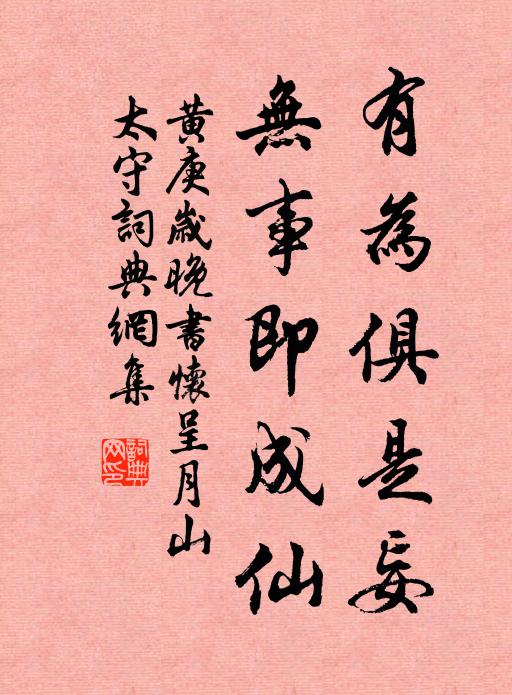 有為俱是妄
無事即成仙
黃庚歲晚書懷呈月山
太守詞典網集
詞典
网印